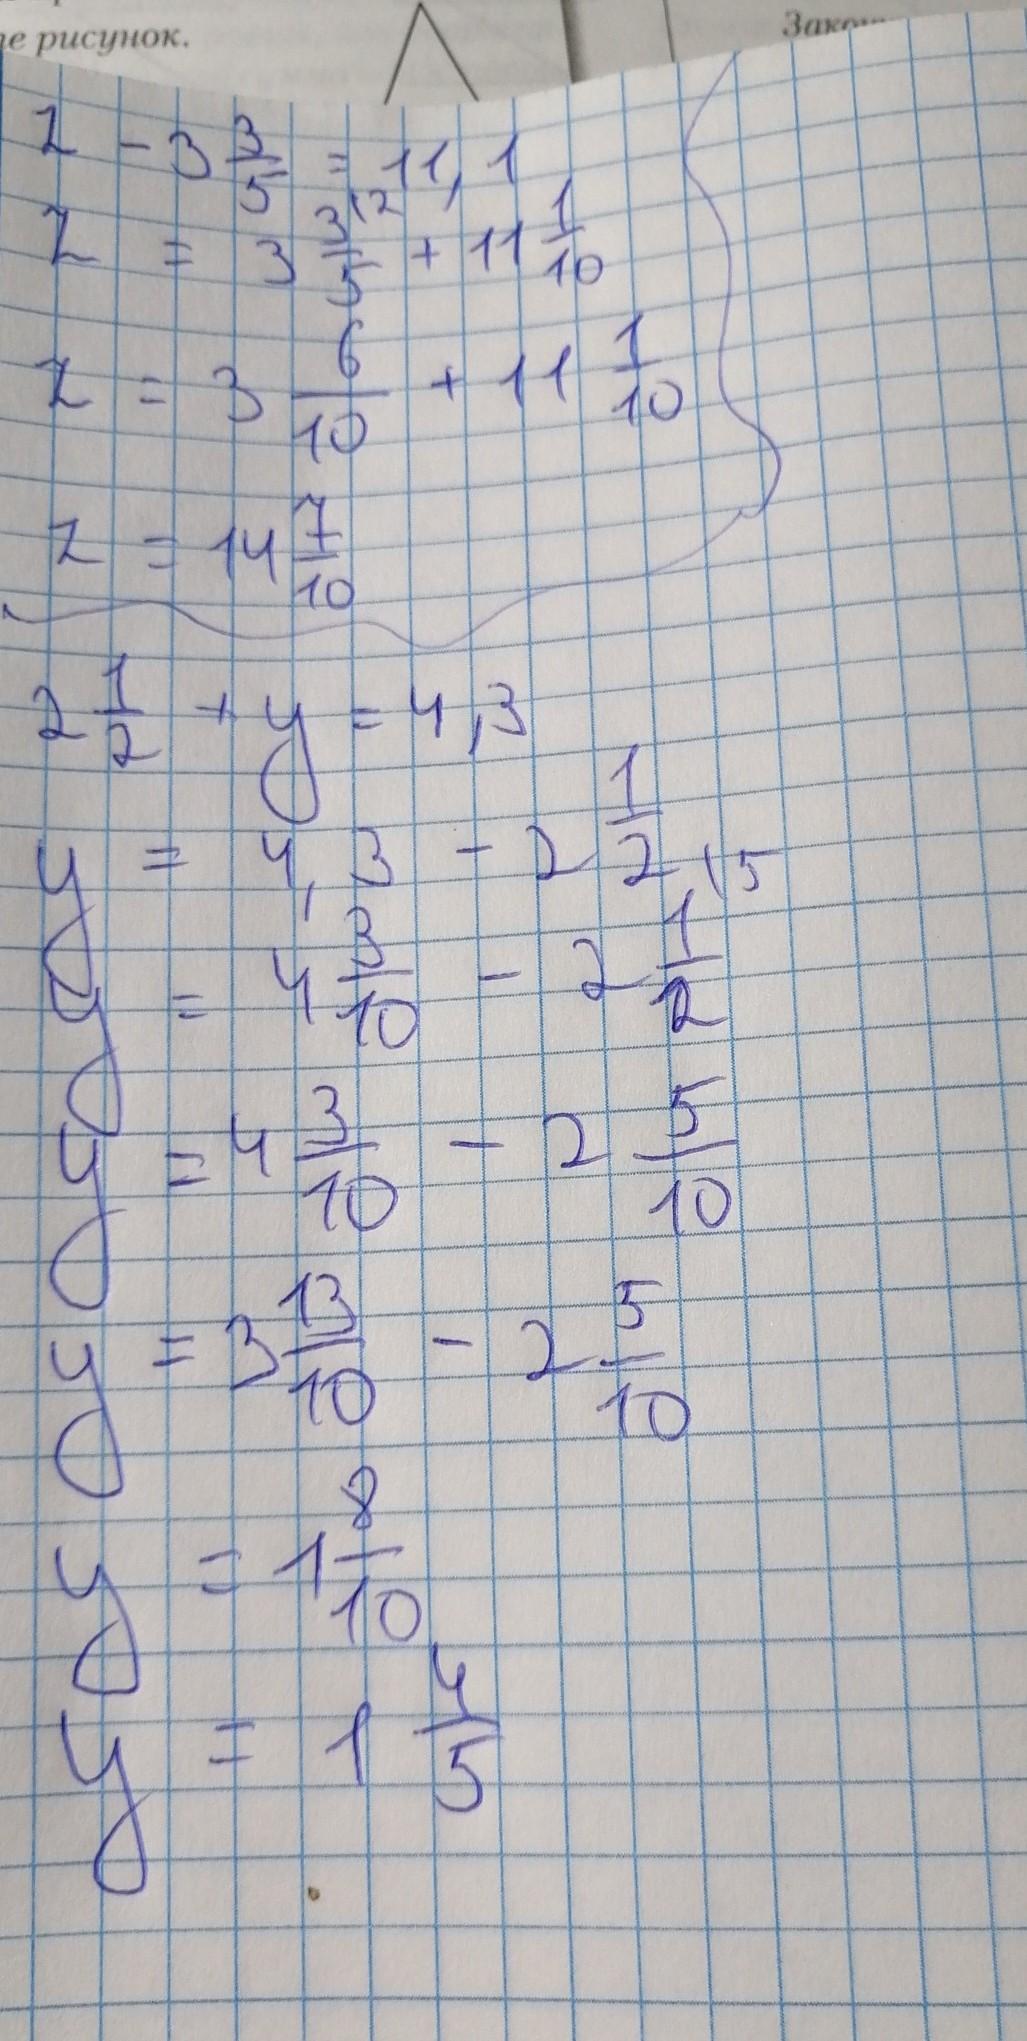 е рисунок.
Зако
z - 3 3/5 = 11,1
z = 3 3/5 (2 + 11 1/10
z = 3 6/10 + 11 1/10
z = 14 7/10
2 1/2 + y = 4,3
y = 4,3 - 2 1/2
y = 4 3/10 - 2 1/2 (5
y = 4 3/10 - 2 5/10
y = 3 13/10 - 2 5/10
y = 1 8/10
y = 1 4/5